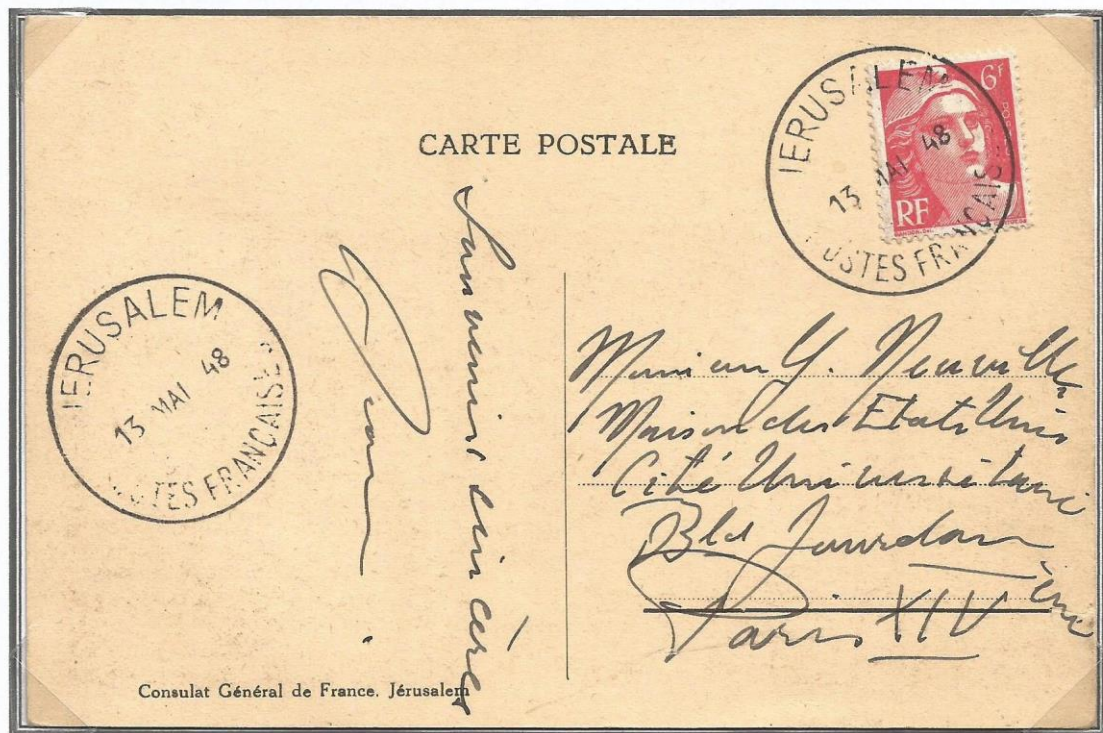 CARTE POSTALE
IERUSALEM
13 MAI 48
POSTES FRANÇAISES
6F
POSTES
RF
IERUSALEM
13 MAI 48
POSTES FRANÇAISES
Souvenirs sincères
Monsieur Y. Neuville
Maison des Etats Unis
Cité Universitaire
Bld Jourdan
Paris XIVème
Consulat Général de France. Jérusalem